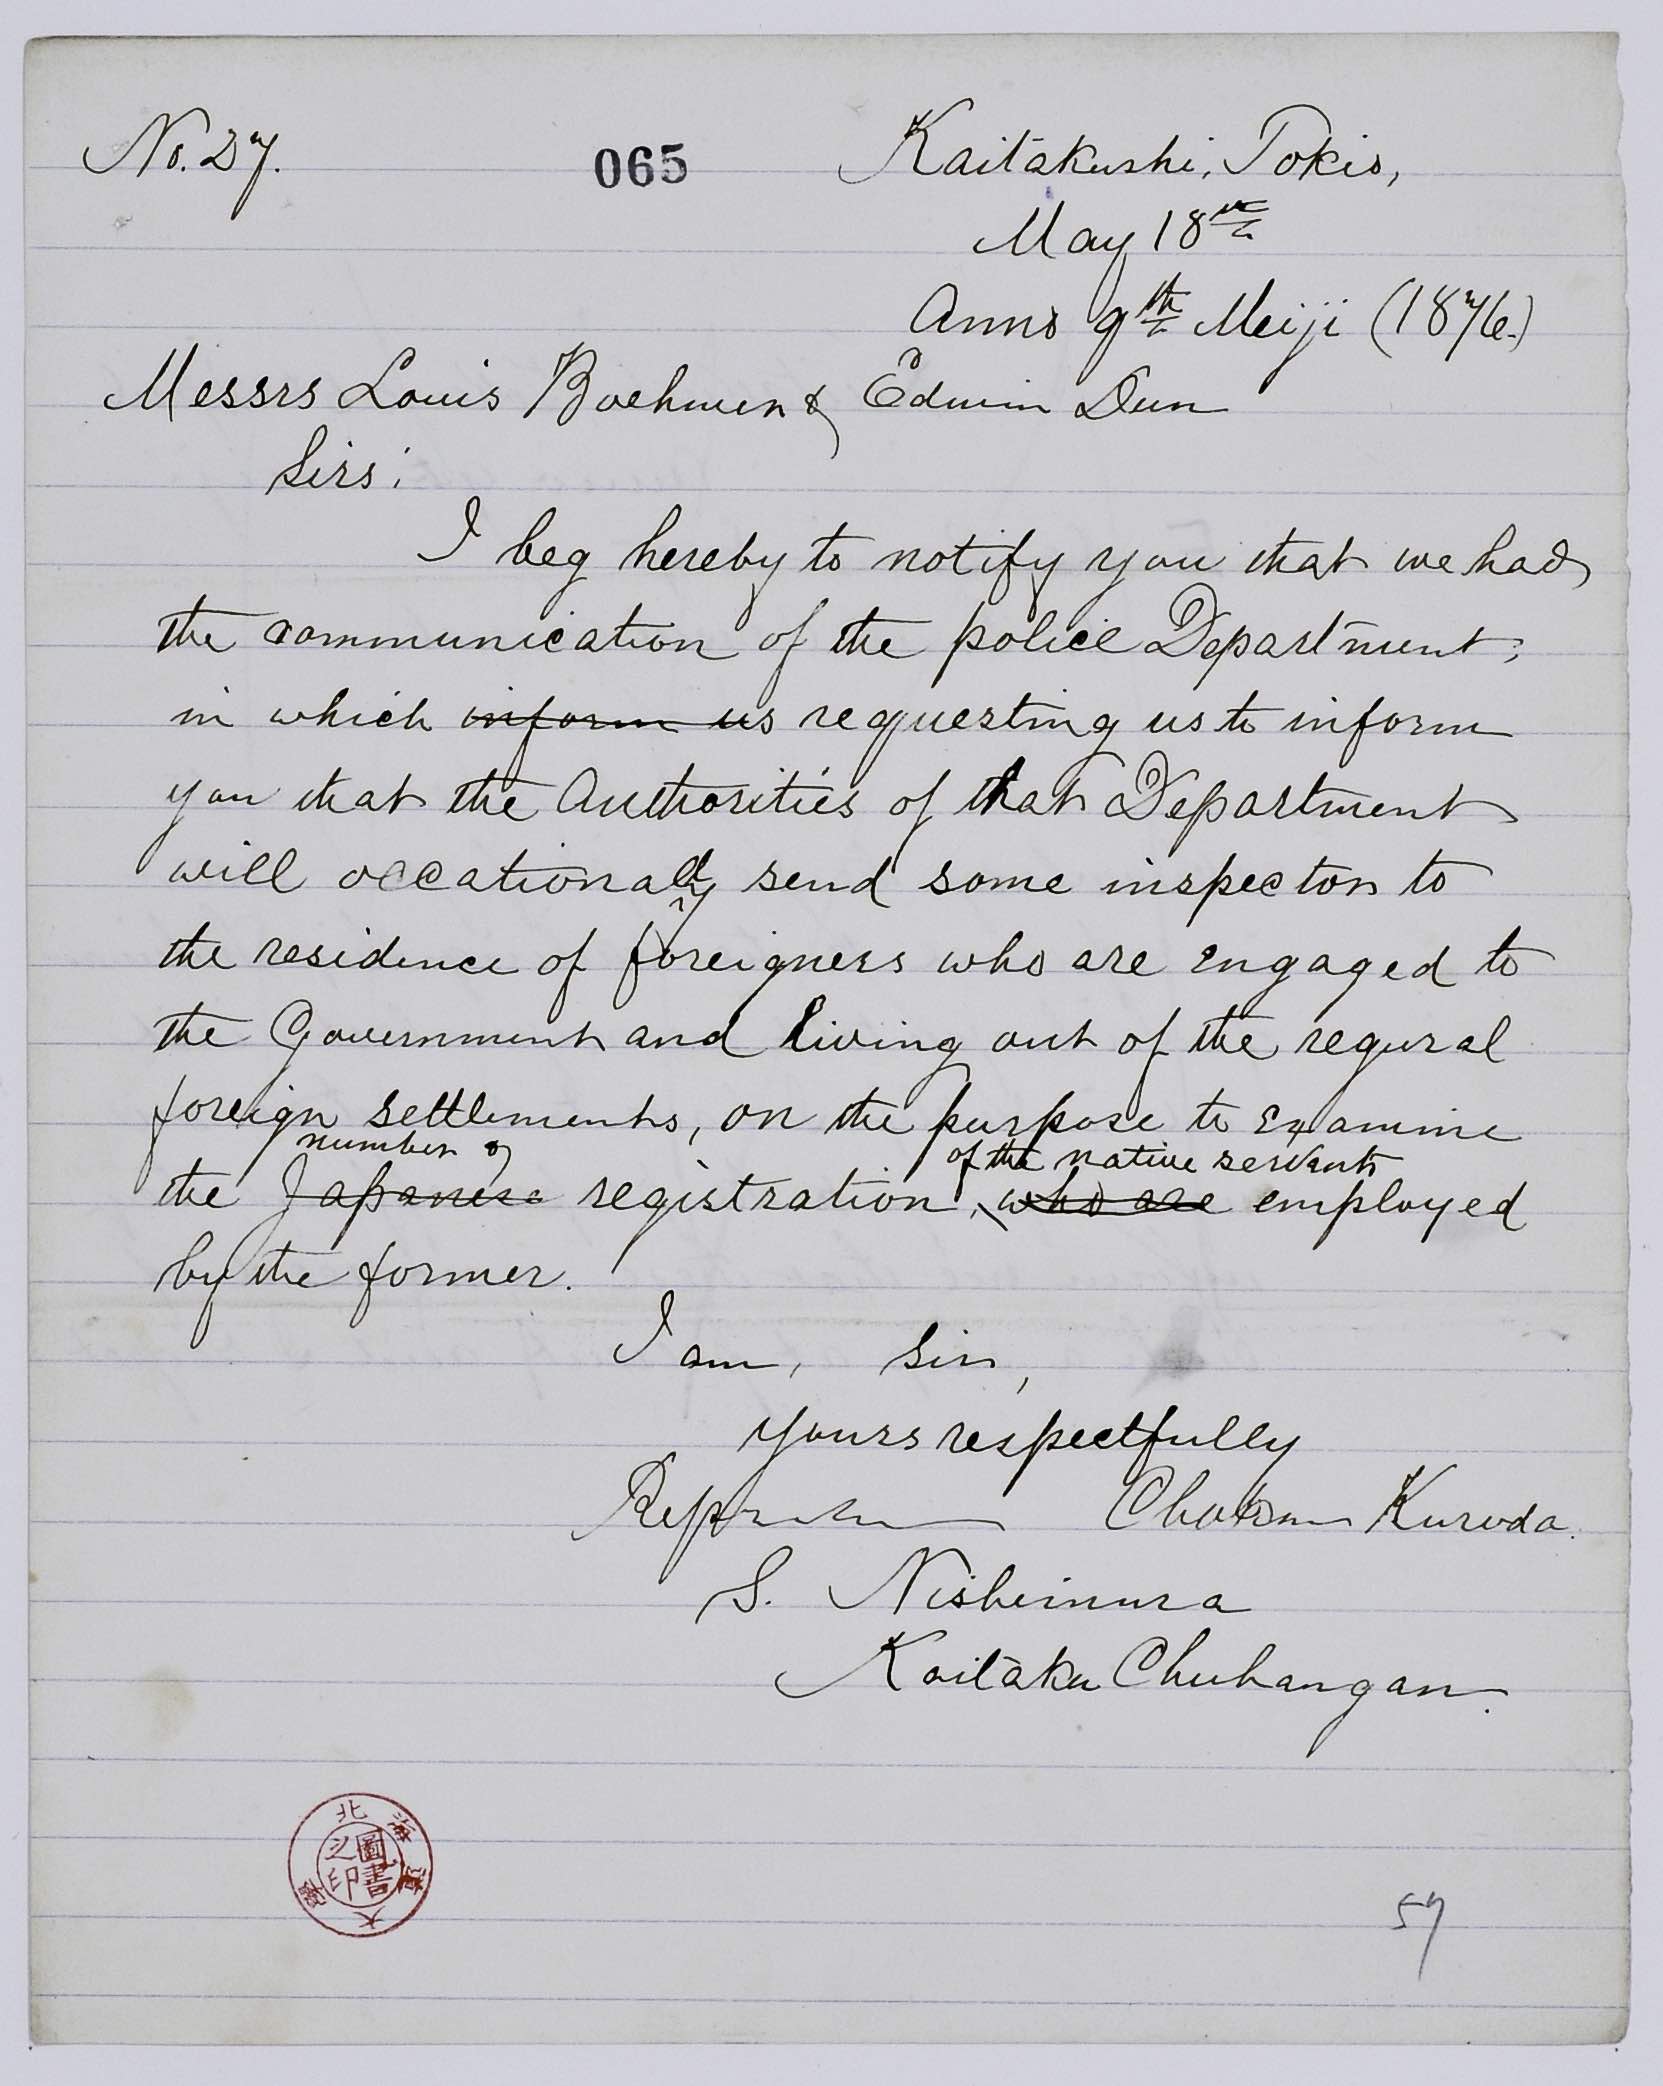 No. 27.
065
Kaitakushi, Tokio,
May 18th
Anno 9th Meiji (1876.)
Messrs Louis Boehmer & Edwin Dun
Sirs;
I beg hereby to notify you that we had
the communication of the police Department,
in which inform us requesting us to inform
you that the Authorities of that Department
will occationally send some inspector to
the residence of foreigners who are engaged to
the Government and living out of the regural
foreign settlements, on the purpose to examine
number of
of the native servants
the Japanese registration, who are employed
by the former.
I am, Sir,
yours respectfully
Kuroda.
S. Nishimura
Kaitaku Chuhangan.
北海道大學
圖書之印
57